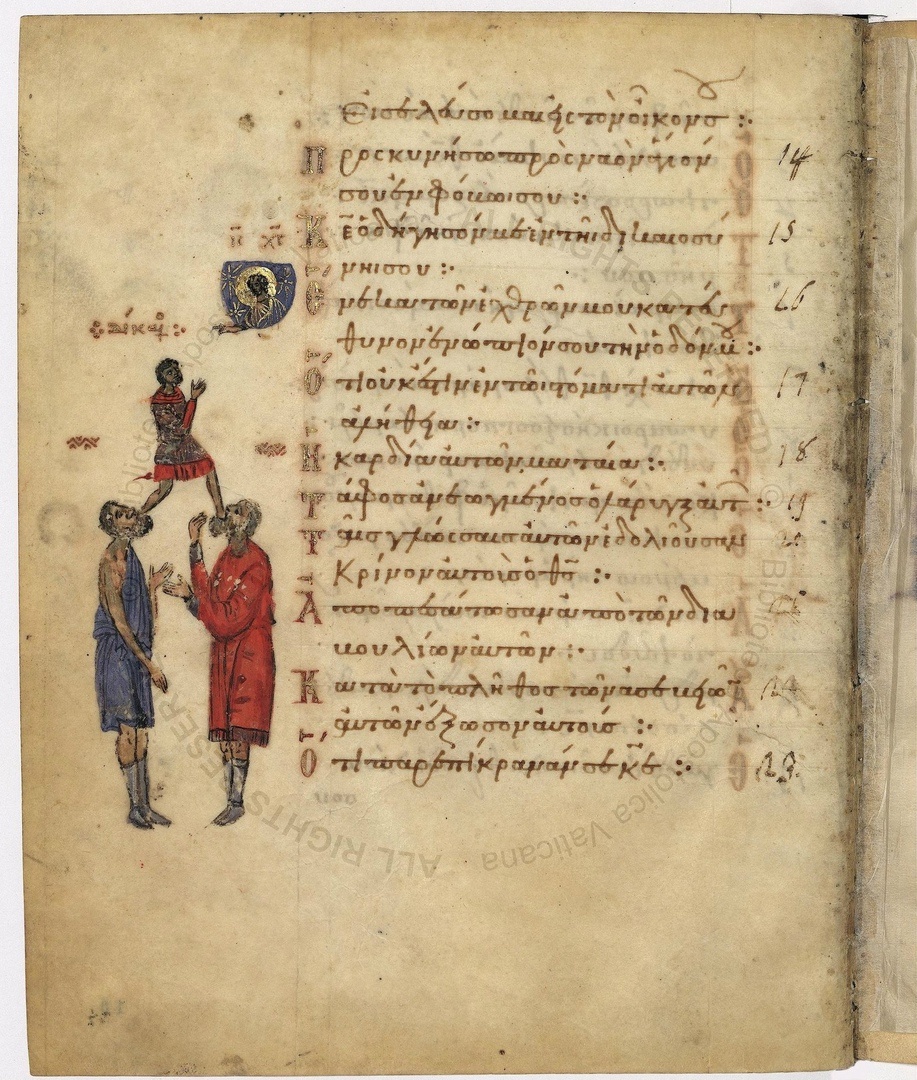 Εἰσελεύσομαι εἰς τὸν οἶκόν σου :
Προσκυνήσω πρὸς ναὸν ἅγιόν 14
σου ἐν φόβωι σου :
Κε ὁδήγησόν με ἐν τῆι δικαιοσύ 15
νηι σου :
Ἕνεκα τῶν ἐχθρῶν μου κατεύ 16
θυνον ἐνώπιόν σου τὴν ὁδόν μου :
Ὅτι οὐκ ἔστιν ἐν τῶι στόματι αὐτῶν 17
ἀλήθεια :
Ἡ καρδία αὐτῶν ματαία : 18
Τάφος ἀνεωγμένος ὁ λάρυγξ αὐτ : 19
Ταῖς γλώσσαις αὐτῶν ἐδολιοῦσαν 20
Κρίνον αὐτοὺς ὁ θς :
Ἀποπεσάτωσαν ἀπὸ τῶν δια
βουλιῶν αὐτῶν :
Κατὰ τὸ πλῆθος τῶν ἀσεβειῶ 22
αὐτῶν ἔξωσον αὐτούς :
Ὅτι παρεπίκρανάν σε κε : 23
ALL RIGHTS RESERVED
Biblioteca Apostolica Vaticana